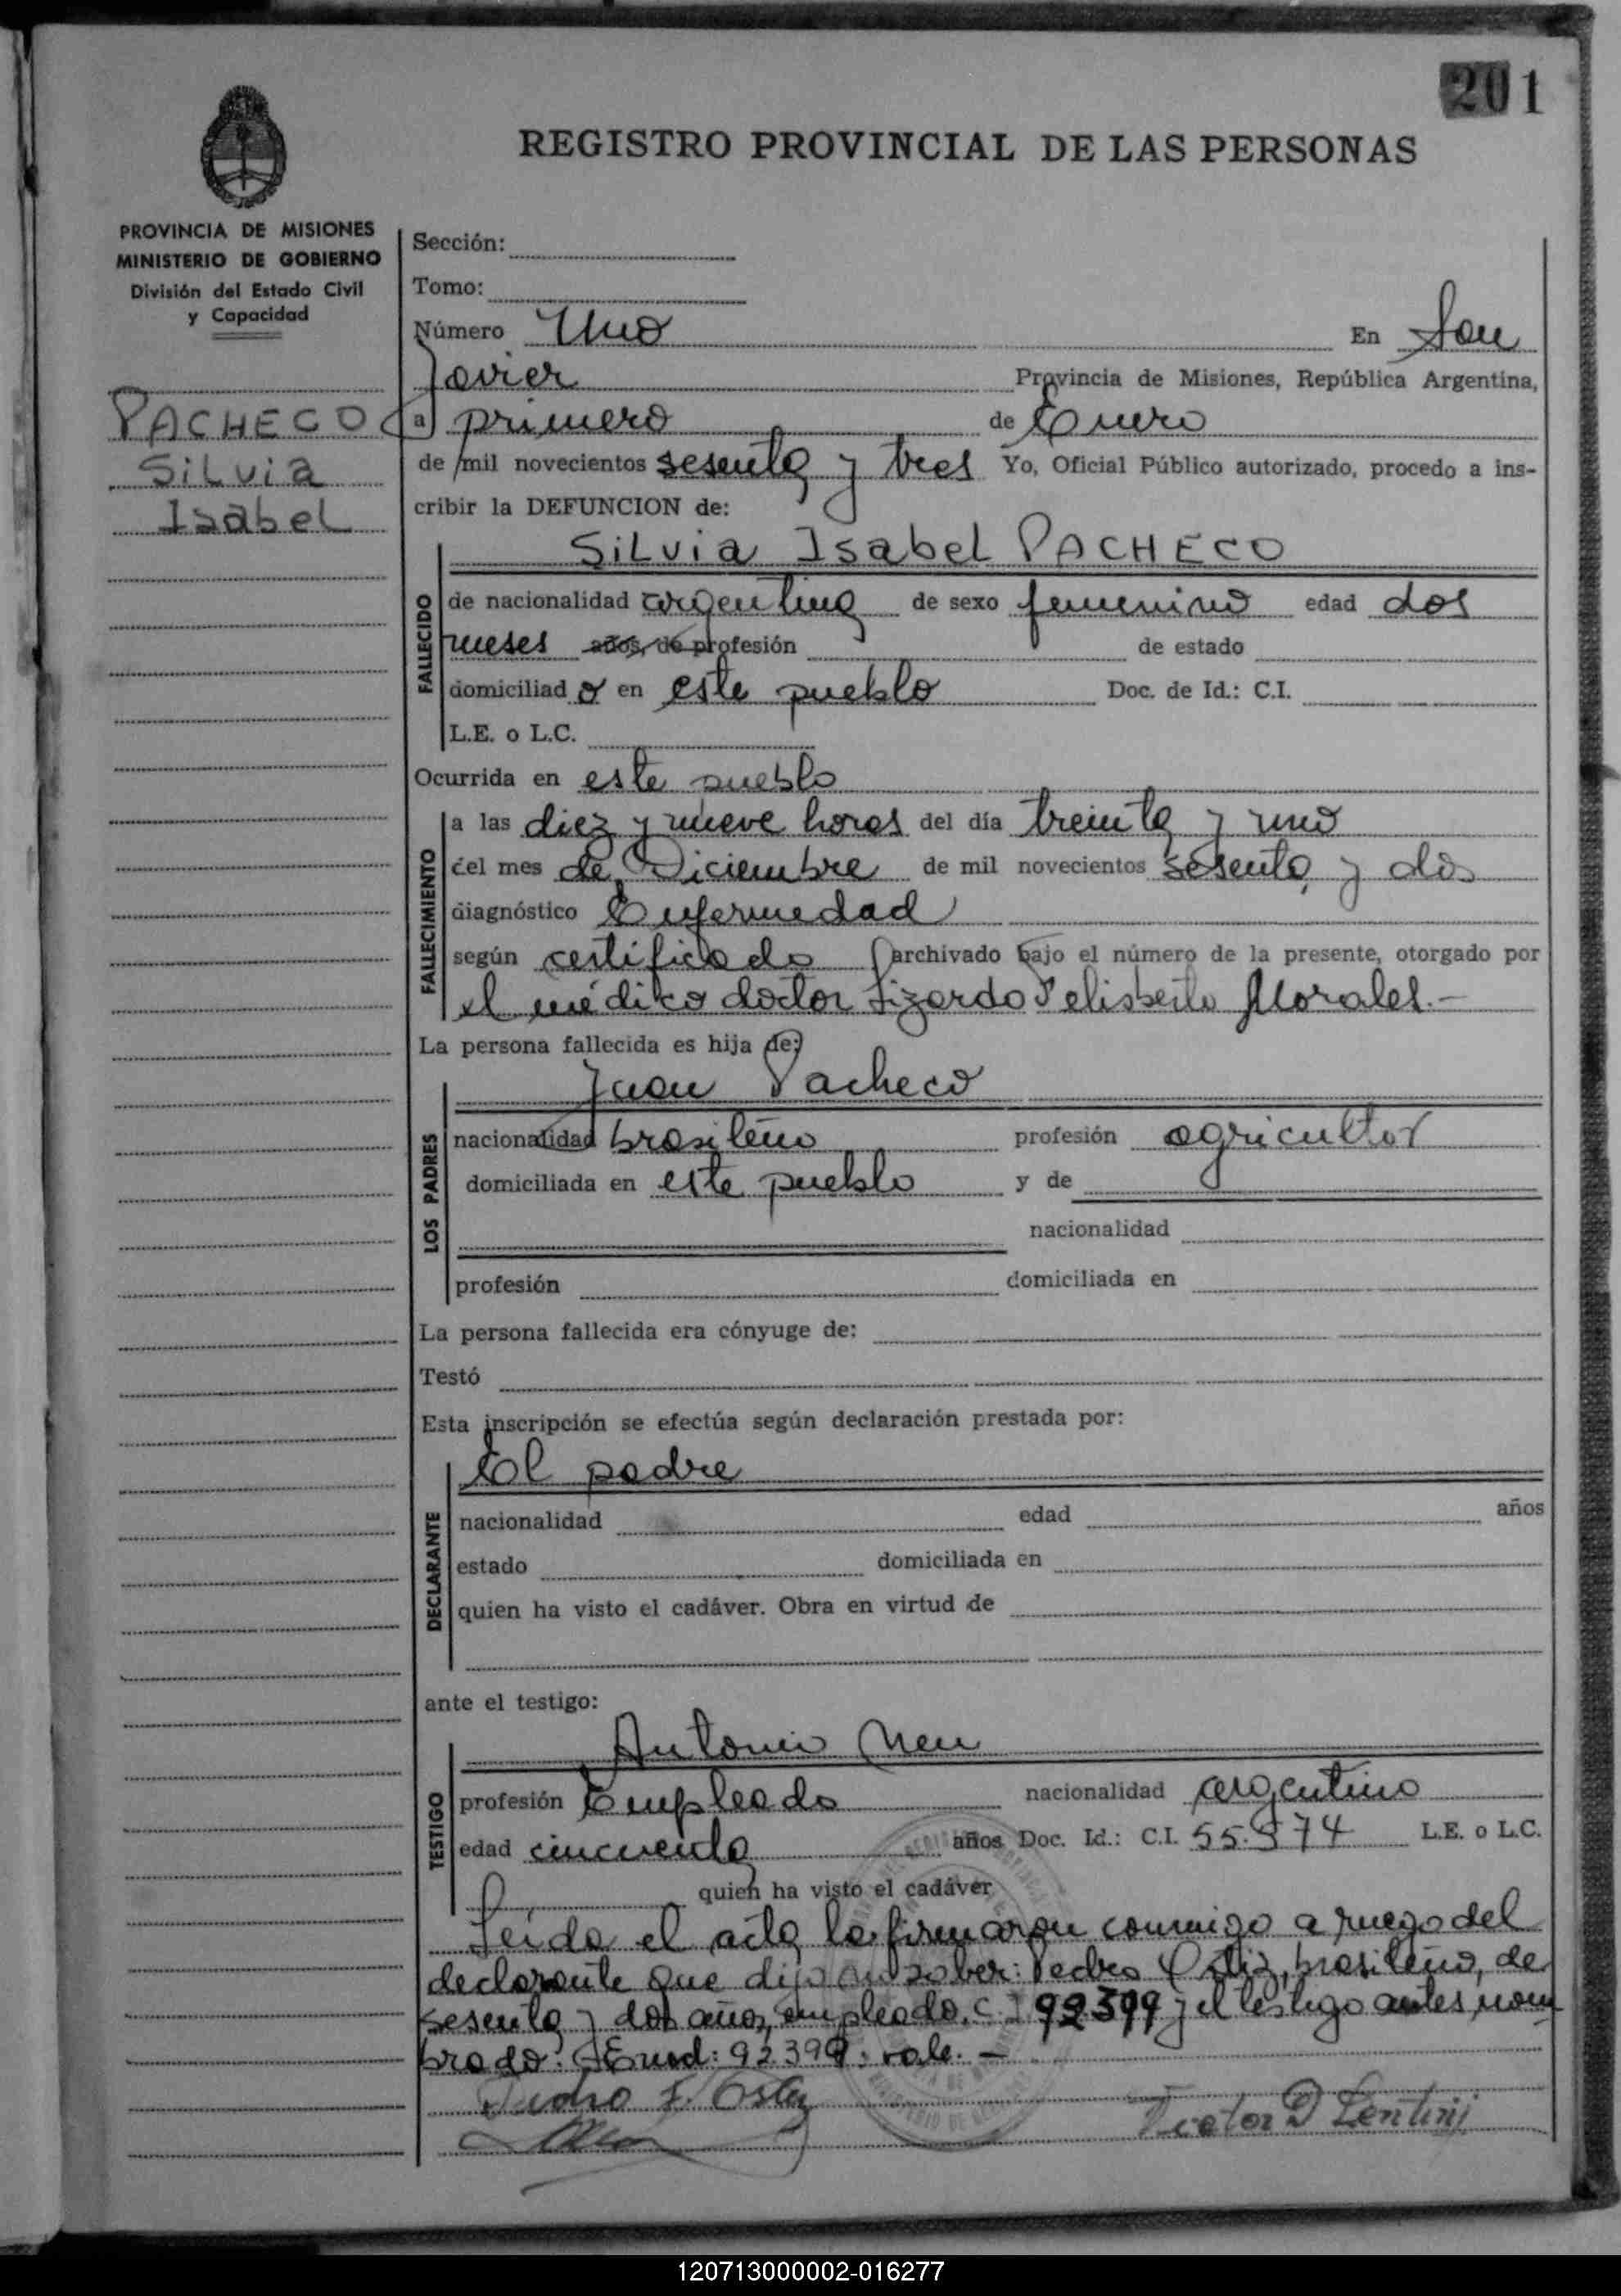 201
REGISTRO PROVINCIAL DE LAS PERSONAS
PROVINCIA DE MISIONES
MINISTERIO DE GOBIERNO
División del Estado Civil
y Capacidad
PACHECO
Silvia
Isabel
Sección:
Tomo:
Número Uno En San
Javier Provincia de Misiones, República Argentina,
a primero de Enero
de mil novecientos sesenta y tres Yo, Oficial Público autorizado, procedo a ins-
cribir la DEFUNCION de:
Silvia Isabel PACHECO
FALLECIDO
de nacionalidad argentina de sexo femenino edad dos
meses años, de profesión de estado
domiciliad o en este pueblo Doc. de Id.: C.I.
L.E. o L.C.
Ocurrida en este pueblo
FALLECIMIENTO
a las diez y nueve horas del día treinta y uno
del mes de Diciembre de mil novecientos sesenta y dos
diagnóstico Enfermedad
según certificado archivado bajo el número de la presente, otorgado por
el médico doctor Lizardo Felisberto Morales.-
La persona fallecida es hija de:
Juan Pacheco
LOS PADRES
nacionalidad brasileño profesión agricultor
domiciliada en este pueblo y de
nacionalidad
profesión domiciliada en
La persona fallecida era cónyuge de:
Testó
Esta inscripción se efectúa según declaración prestada por:
El padre
DECLARANTE
nacionalidad edad años
estado domiciliada en
quien ha visto el cadáver. Obra en virtud de
ante el testigo:
Antonio Neu
TESTIGO
profesión Empleado nacionalidad argentino
edad cincuenta años Doc. Id.: C.I. 55.974 L.E. o L.C.
quien ha visto el cadáver
Leída el acta la firmaron conmigo a ruego del
declarante que dijo no saber: Pedro Ostiz, brasileño, de
sesenta y dos años, empleado, C.I 92399 y el testigo antes nom
brado. Enmd: 92.399: vale. -
Pedro F.
Victor D Lentini
120713000002-016277